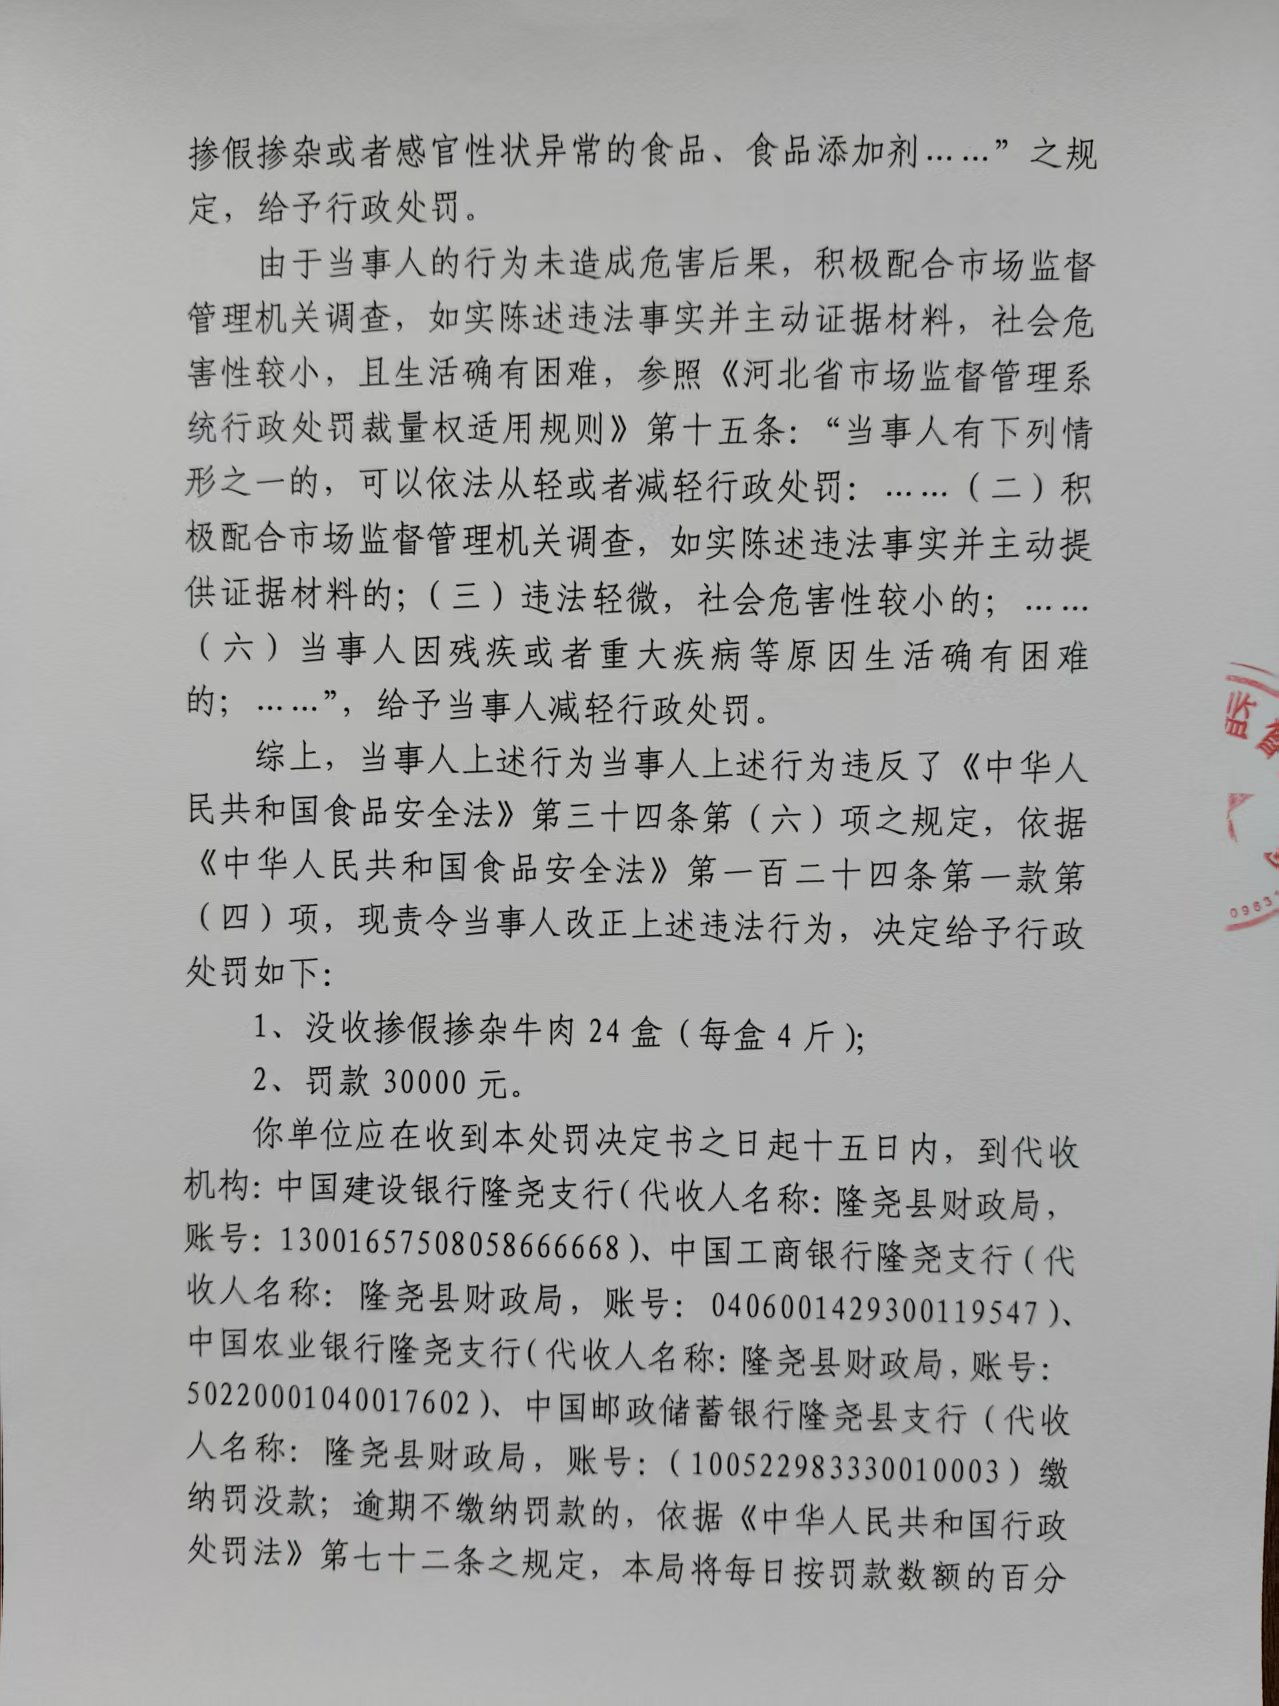 掺假掺杂或者感官性状异常的食品、食品添加剂……”之规
定，给予行政处罚。
由于当事人的行为未造成危害后果，积极配合市场监督
管理机关调查，如实陈述违法事实并主动证据材料，社会危
害性较小，且生活确有困难，参照《河北省市场监督管理系
统行政处罚裁量权适用规则》第十五条：“当事人有下列情
形之一的，可以依法从轻或者减轻行政处罚：……（二）积
极配合市场监督管理机关调查，如实陈述违法事实并主动提
供证据材料的；（三）违法轻微，社会危害性较小的；……
（六）当事人因残疾或者重大疾病等原因生活确有困难
的；……”，给予当事人减轻行政处罚。
综上，当事人上述行为当事人上述行为违反了《中华人
民共和国食品安全法》第三十四条第（六）项之规定，依据
《中华人民共和国食品安全法》第一百二十四条第一款第
（四）项，现责令当事人改正上述违法行为，决定给予行政
处罚如下：
1、没收掺假掺杂牛肉 24 盒（每盒 4 斤）；
2、罚款 30000 元。
你单位应在收到本处罚决定书之日起十五日内，到代收
机构：中国建设银行隆尧支行（代收人名称：隆尧县财政局，
账号：13001657508058666668）、中国工商银行隆尧支行（代
收人名称：隆尧县财政局，账号：0406001429300119547）、
中国农业银行隆尧支行（代收人名称：隆尧县财政局，账号：
50220001040017602）、中国邮政储蓄银行隆尧县支行（代收
人名称：隆尧县财政局，账号：（100522983330010003）缴
纳罚没款；逾期不缴纳罚款的，依据《中华人民共和国行政
处罚法》第七十二条之规定，本局将每日按罚款数额的百分
监
0963